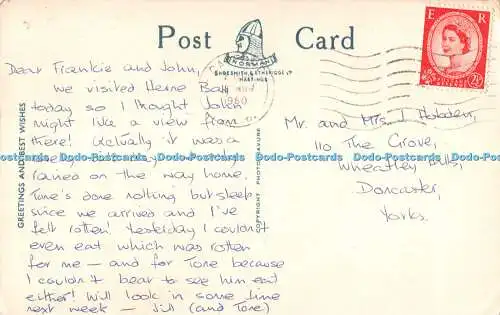 Post Card
"NORMAN"
SHOESMITH & ETHERIDGE LTD
HASTINGS
E R
POSTAGE REVENUE
2½D
1960
GREETINGS AND BEST WISHES
COPYRIGHT PHOTOGRAVURE
Dear Frankie and John,
We visited Herne Bay
today so I thought John
might like a view from
there! Actually it was a
lovely day
rained on the way home.
Tone's done nothing but sleep
since we arrived and I've
felt rotten! Yesterday I couldn't
even eat which was rotten
for me — and for Tone because
I couldn't bear to see him eat
either! Will look in some time
next week — Jill (and Tone)
Mr. and Mrs. J. Hobden,
110 The Grove,
Wheatley Hills,
Doncaster,
Yorks.
Dodo-Postcards Dodo-Postcards Dodo-Postcards Dodo-Postcards Dodo-Postcards Dodo-Postcards